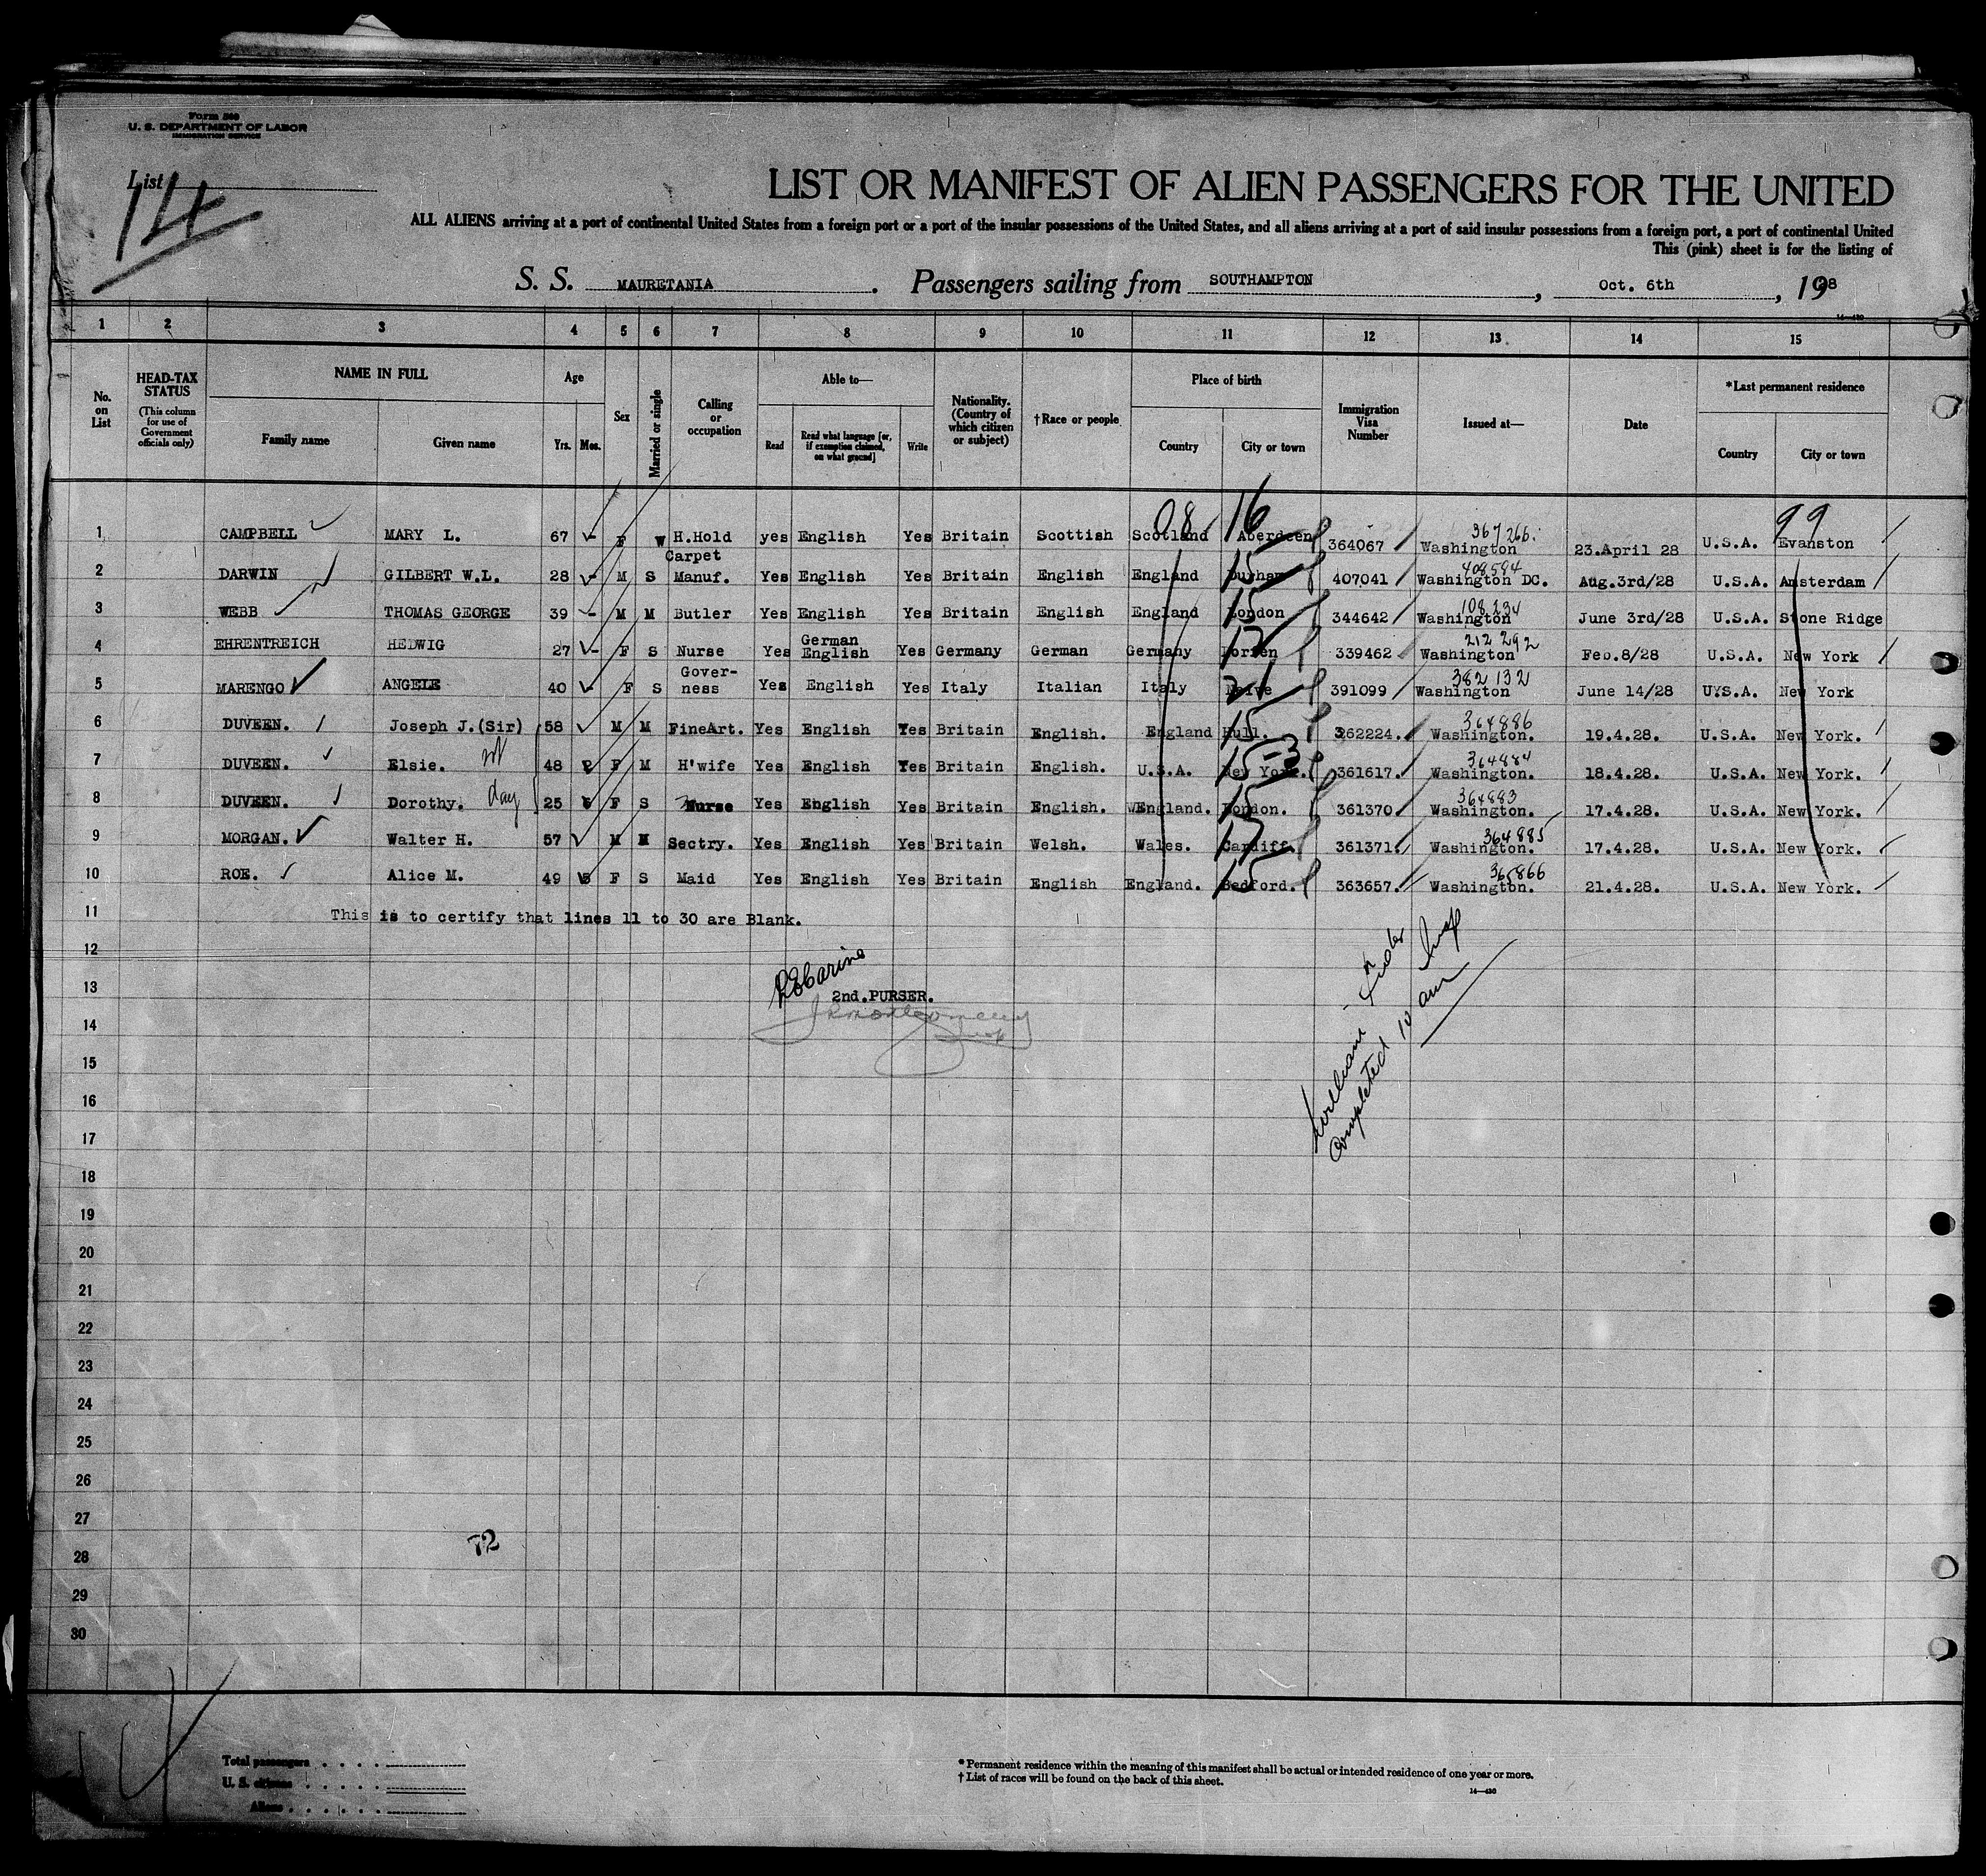 Form 500
U. S. DEPARTMENT OF LABOR
IMMIGRATION SERVICE
List
14
LIST OR MANIFEST OF ALIEN PASSENGERS FOR THE UNITED
ALL ALIENS arriving at a port of continental United States from a foreign port or a port of the insular possessions of the United States, and all aliens arriving at a port of said insular possessions from a foreign port, a port of continental United
This (pink) sheet is for the listing of
S. S. MAURETANIA. Passengers sailing from SOUTHAMPTON, Oct. 6th, 1928
1 2 3 4 5 6 7 8 9 10 11 12 13 14 15
No. on List
HEAD-TAX STATUS (This column for use of Government officials only)
NAME IN FULL Family name Given name
Age Yrs. Mos.
Sex
Married or single
Calling or occupation
Able to— Read Read what language [or, if exemption claimed, on what ground] Write
Nationality. (Country of which citizen or subject)
†Race or people
Place of birth Country City or town
Immigration Visa Number
Issued at—
Date
*Last permanent residence Country City or town
08 16 99
1 CAMPBELL MARY L. 67 - F W H.Hold yes English Yes Britain Scottish Scotland Aberdeen 364067 367266 Washington 23.April 28 U.S.A. Evanston
2 DARWIN GILBERT W.L. 28 - M S Carpet Manuf. Yes English Yes Britain English England Durham 15 407041 408594 Washington DC. Aug.3rd/28 U.S.A. Amsterdam
3 WEBB THOMAS GEORGE 39 - M M Butler Yes English Yes Britain English England London 15 344642 108234 Washington June 3rd/28 U.S.A. Stone Ridge
4 EHRENTREICH HEDWIG 27 - F S Nurse Yes German English Yes Germany German Germany 339462 212292 Washington Feb.8/28 U.S.A. New York
5 MARENGO ANGELE 40 - F S Gover-ness Yes English Yes Italy Italian Italy 21 391099 382132 Washington June 14/28 UYS.A. New York
6 DUVEEN. Joseph J.(Sir) 58 M M FineArt. Yes English Yes Britain English. England Hull. 15 362224. 364886 Washington. 19.4.28. U.S.A. New York.
7 DUVEEN. Elsie. 48 F M H'wife Yes English Yes Britain English. U.S.A. New York. 361617. 364884 Washington. 18.4.28. U.S.A. New York.
8 DUVEEN. Dorothy. 25 F S Nurse Yes English Yes Britain English. England. London. 15 361370. 364883 Washington. 17.4.28. U.S.A. New York.
9 MORGAN. Walter H. 57 M M Sectry. Yes English Yes Britain Welsh. Wales. Cardiff. 17 361371. 364885 Washington. 17.4.28. U.S.A. New York.
10 ROE. Alice M. 49 F S Maid Yes English Yes Britain English England. Bedford. 15 363657. 365866 Washington. 21.4.28. U.S.A. New York.
11 This is to certify that lines 11 to 30 are Blank.
12
13 2nd.PURSER.
14
15
16
17
18
19
20
21
22
23
24
25
26
27
28
29
30
completed 10 am
72
Total passengers
U. S. citizens
Aliens
*Permanent residence within the meaning of this manifest shall be actual or intended residence of one year or more.
†List of races will be found on the back of this sheet.
14—430